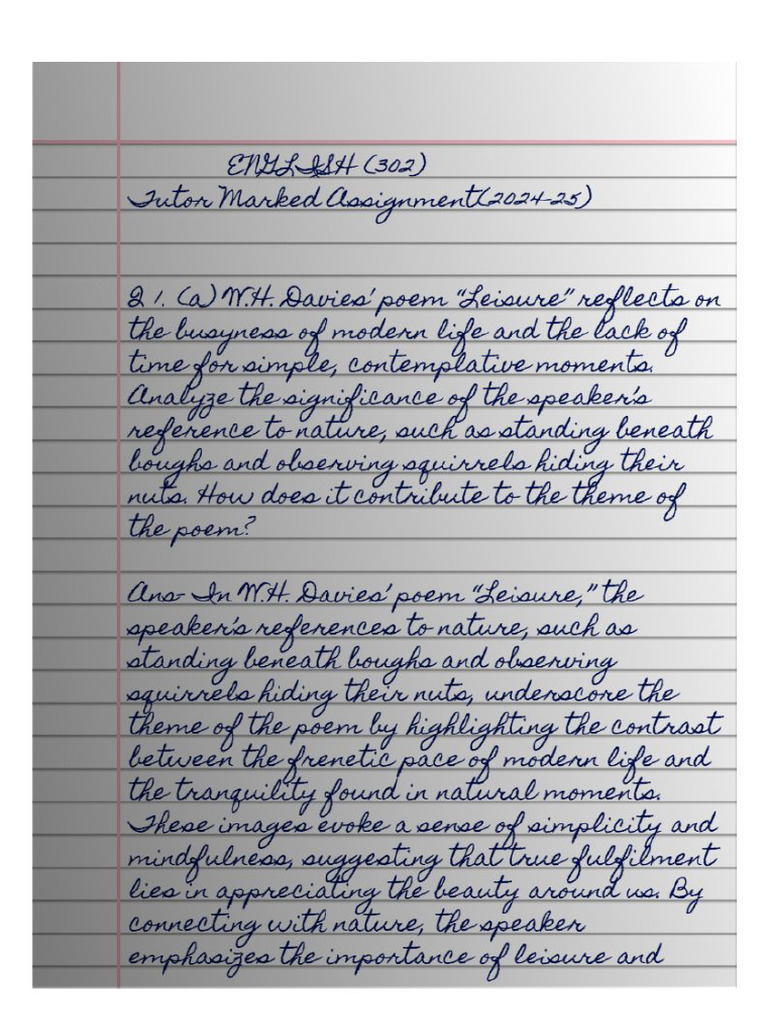 ENGLISH (302)
Tutor Marked Assignment(2024-25)
Q 1. (a) W.H. Davies' poem "Leisure" reflects on
the busyness of modern life and the lack of
time for simple, contemplative moments.
Analyze the significance of the speaker's
reference to nature, such as standing beneath
boughs and observing squirrels hiding their
nuts. How does it contribute to the theme of
the poem?
Ans- In W.H. Davies' poem "Leisure," the
speaker's references to nature, such as
standing beneath boughs and observing
squirrels hiding their nuts, underscore the
theme of the poem by highlighting the contrast
between the frenetic pace of modern life and
the tranquility found in natural moments.
These images evoke a sense of simplicity and
mindfulness, suggesting that true fulfilment
lies in appreciating the beauty around us. By
connecting with nature, the speaker
emphasizes the importance of leisure and